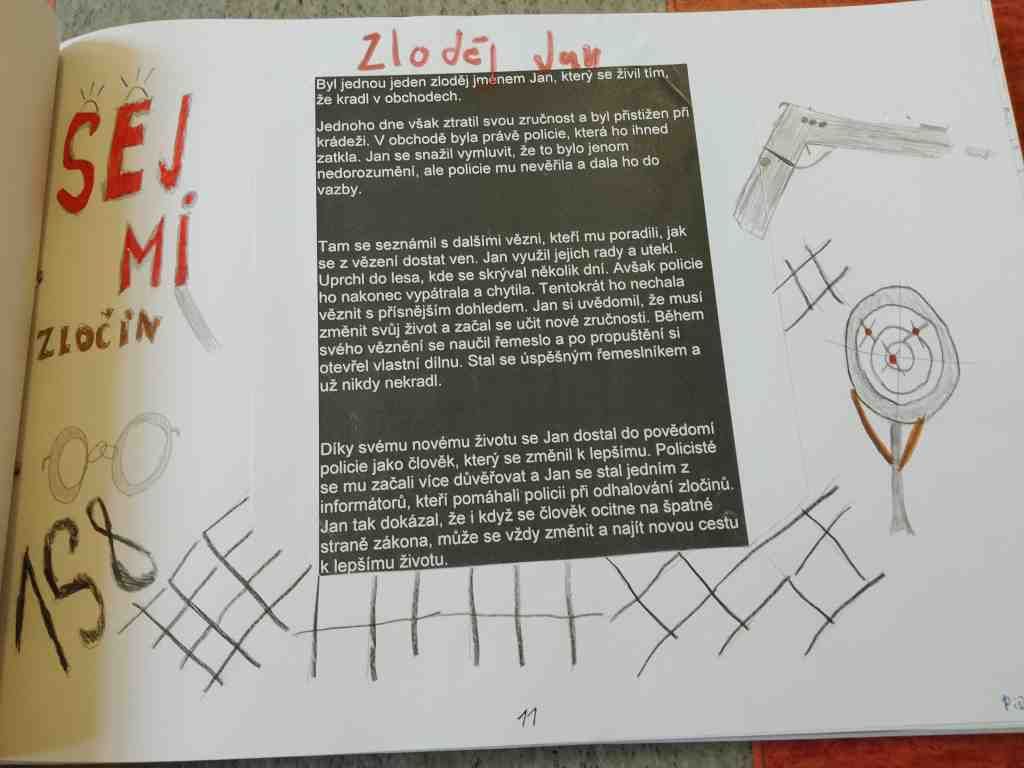 Zloděj Jan
SEJ
MÍ
ZLOČIN
158
Byl jednou jeden zloděj jménem Jan, který se živil tím,
že kradl v obchodech.
Jednoho dne však ztratil svou zručnost a byl přistižen při
krádeži. V obchodě byla právě policie, která ho ihned
zatkla. Jan se snažil vymluvit, že to bylo jenom
nedorozumění, ale policie mu nevěřila a dala ho do
vazby.
Tam se seznámil s dalšími vězni, kteří mu poradili, jak
se z vězení dostat ven. Jan využil jejich rady a utekl.
Uprchl do lesa, kde se skrýval několik dní. Avšak policie
ho nakonec vypátrala a chytila. Tentokrát ho nechala
věznit s přísnějším dohledem. Jan si uvědomil, že musí
změnit svůj život a začal se učit nové zručnosti. Během
svého věznění se naučil řemeslo a po propuštění si
otevřel vlastní dílnu. Stal se úspěšným řemeslníkem a
už nikdy nekradl.
Díky svému novému životu se Jan dostal do povědomí
policie jako člověk, který se změnil k lepšímu. Policisté
se mu začali více důvěřovat a Jan se stal jedním z
informátorů, kteří pomáhali policii při odhalování zločinů.
Jan tak dokázal, že i když se člověk ocitne na špatné
straně zákona, může se vždy změnit a najít novou cestu
k lepšímu životu.
11